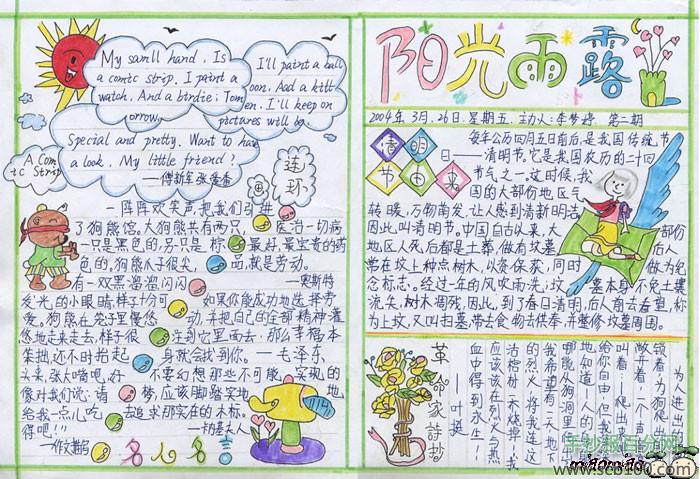 My samll hand. Is
a comic strip. I paint a
watch. And a birdie; Tom
orrow,
I'll paint a ball
oon. And a kitt
en. I'll keep on
pictures will be
Special and pretty. Want to have
a look. My little friend?
A Com
ic Strip
连
环
一阵阵欢笑声,把我们引进
了狗熊馆。大狗熊共有两只,
一只是黑色的,另一只是棕
色的。狗熊个子很大,
有一双黑溜溜闪闪
发光的小眼睛,样子十分可
爱。狗熊在笼子里慢悠
悠地走来走去,样子很
笨拙,还不时抬起
头来,张大嘴吧,好
像对我们说:请
给我一点儿吃
得吧!!
医治一切病
最好,最宝贵的药
品,就是劳动。
——奥斯特
如果你能成功地选择劳
动,并把自己的全部精神灌
注到它里面去,那么幸福本
身就会找到你。
不要幻想那些不可能实现的
梦,应该脚踏实地地
去追求那实在的木标。
名人名言
阳光雨露
2004年3月26日 星期五 第二期
清明
节由来
每年公历四月五日前后,是我国传统节
日——清明节。它是我国农历的二十四
节气之一。这时候,我
国的大部份地区气
转暖,万物萌发,让人感到清新明洁
因此叫清明节。中国自古以来,大
地区人死后都是土葬,做有坟墓
常在坟上种点树木,以资保荻,同时
念标志。经过一年的风吹雨洗,坟
流失,树木凋残,因此,到了春日清明,后人前去看望,称
为上坟,又叫扫墓,带去食物去供奉,并整修坟墓周围。
部份后
人做为纪
墓本身不免土壤
革命家诗抄
——叶挺
为人进出的门紧
锁着,
为狗爬出
敞着,一个声音
叫着:爬出来吧
给你自由!但我深深
地知道——人的
哪能从狗洞里
我希望有一天地下
的烈火,将我连这
活棺材一齐烧掉!我
应该在烈火与热
血中得到永生!
手抄报百分网
www.scb100.com